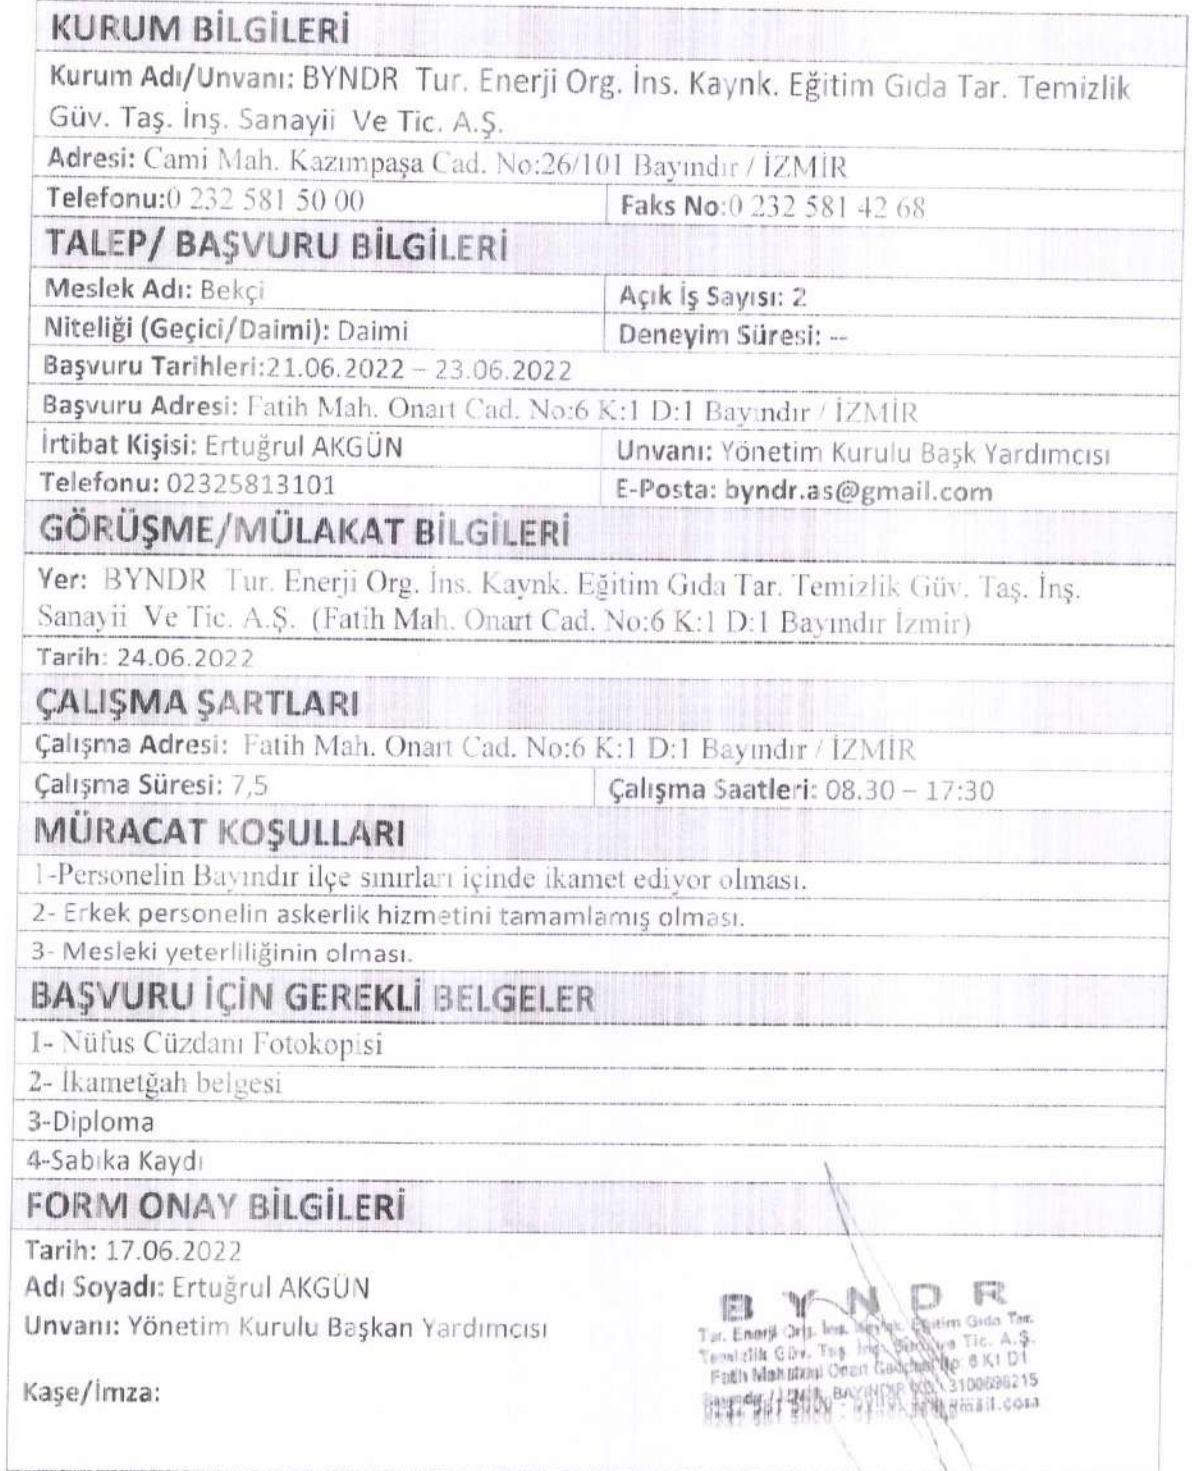 KURUM BİLGİLERİ
Kurum Adı/Unvanı: BYNDR Tur. Enerji Org. İns. Kaynk. Eğitim Gıda Tar. Temizlik
Güv. Taş. İnş. Sanayii Ve Tic. A.Ş.
Adresi: Cami Mah. Kazımpaşa Cad. No:26/101 Bayındır / İZMİR
Telefonu:0 232 581 50 00 Faks No:0 232 581 42 68
TALEP/ BAŞVURU BİLGİLERİ
Meslek Adı: Bekçi Açık İş Sayısı: 2
Niteliği (Geçici/Daimi): Daimi Deneyim Süresi: --
Başvuru Tarihleri:21.06.2022 – 23.06.2022
Başvuru Adresi: Fatih Mah. Onart Cad. No:6 K:1 D:1 Bayındır / İZMİR
İrtibat Kişisi: Ertuğrul AKGÜN Unvanı: Yönetim Kurulu Başk Yardımcısı
Telefonu: 02325813101 E-Posta: byndr.as@gmail.com
GÖRÜŞME/MÜLAKAT BİLGİLERİ
Yer: BYNDR Tur. Enerji Org. İns. Kaynk. Eğitim Gıda Tar. Temizlik Güv. Taş. İnş.
Sanayii Ve Tic. A.Ş. (Fatih Mah. Onart Cad. No:6 K:1 D:1 Bayındır İzmir)
Tarih: 24.06.2022
ÇALIŞMA ŞARTLARI
Çalışma Adresi: Fatih Mah. Onart Cad. No:6 K:1 D:1 Bayındır / İZMİR
Çalışma Süresi: 7,5 Çalışma Saatleri: 08.30 – 17:30
MÜRACAT KOŞULLARI
1-Personelin Bayındır ilçe sınırları içinde ikamet ediyor olması.
2- Erkek personelin askerlik hizmetini tamamlamış olması.
3- Mesleki yeterliliğinin olması.
BAŞVURU İÇİN GEREKLİ BELGELER
1- Nüfus Cüzdanı Fotokopisi
2- İkametğah belgesi
3-Diploma
4-Sabıka Kaydı
FORM ONAY BİLGİLERİ
Tarih: 17.06.2022
Adı Soyadı: Ertuğrul AKGÜN
Unvanı: Yönetim Kurulu Başkan Yardımcısı
Kaşe/İmza:
BYNDR
Tur. Enerji Org. İns. Eğitim Gıda Tar.
Temizlik Güv. Taş. İnş. Tic. A.Ş.
Fatih Mahallesi Onart Caddesi No: 6 K1 D1
BAYINDIR 3100696215